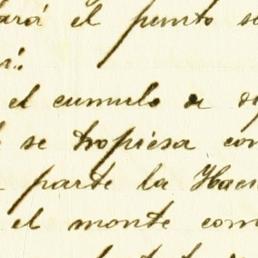 ará el punto se
el cumulo a
se tropiesa con
parte la Haci
el monte com